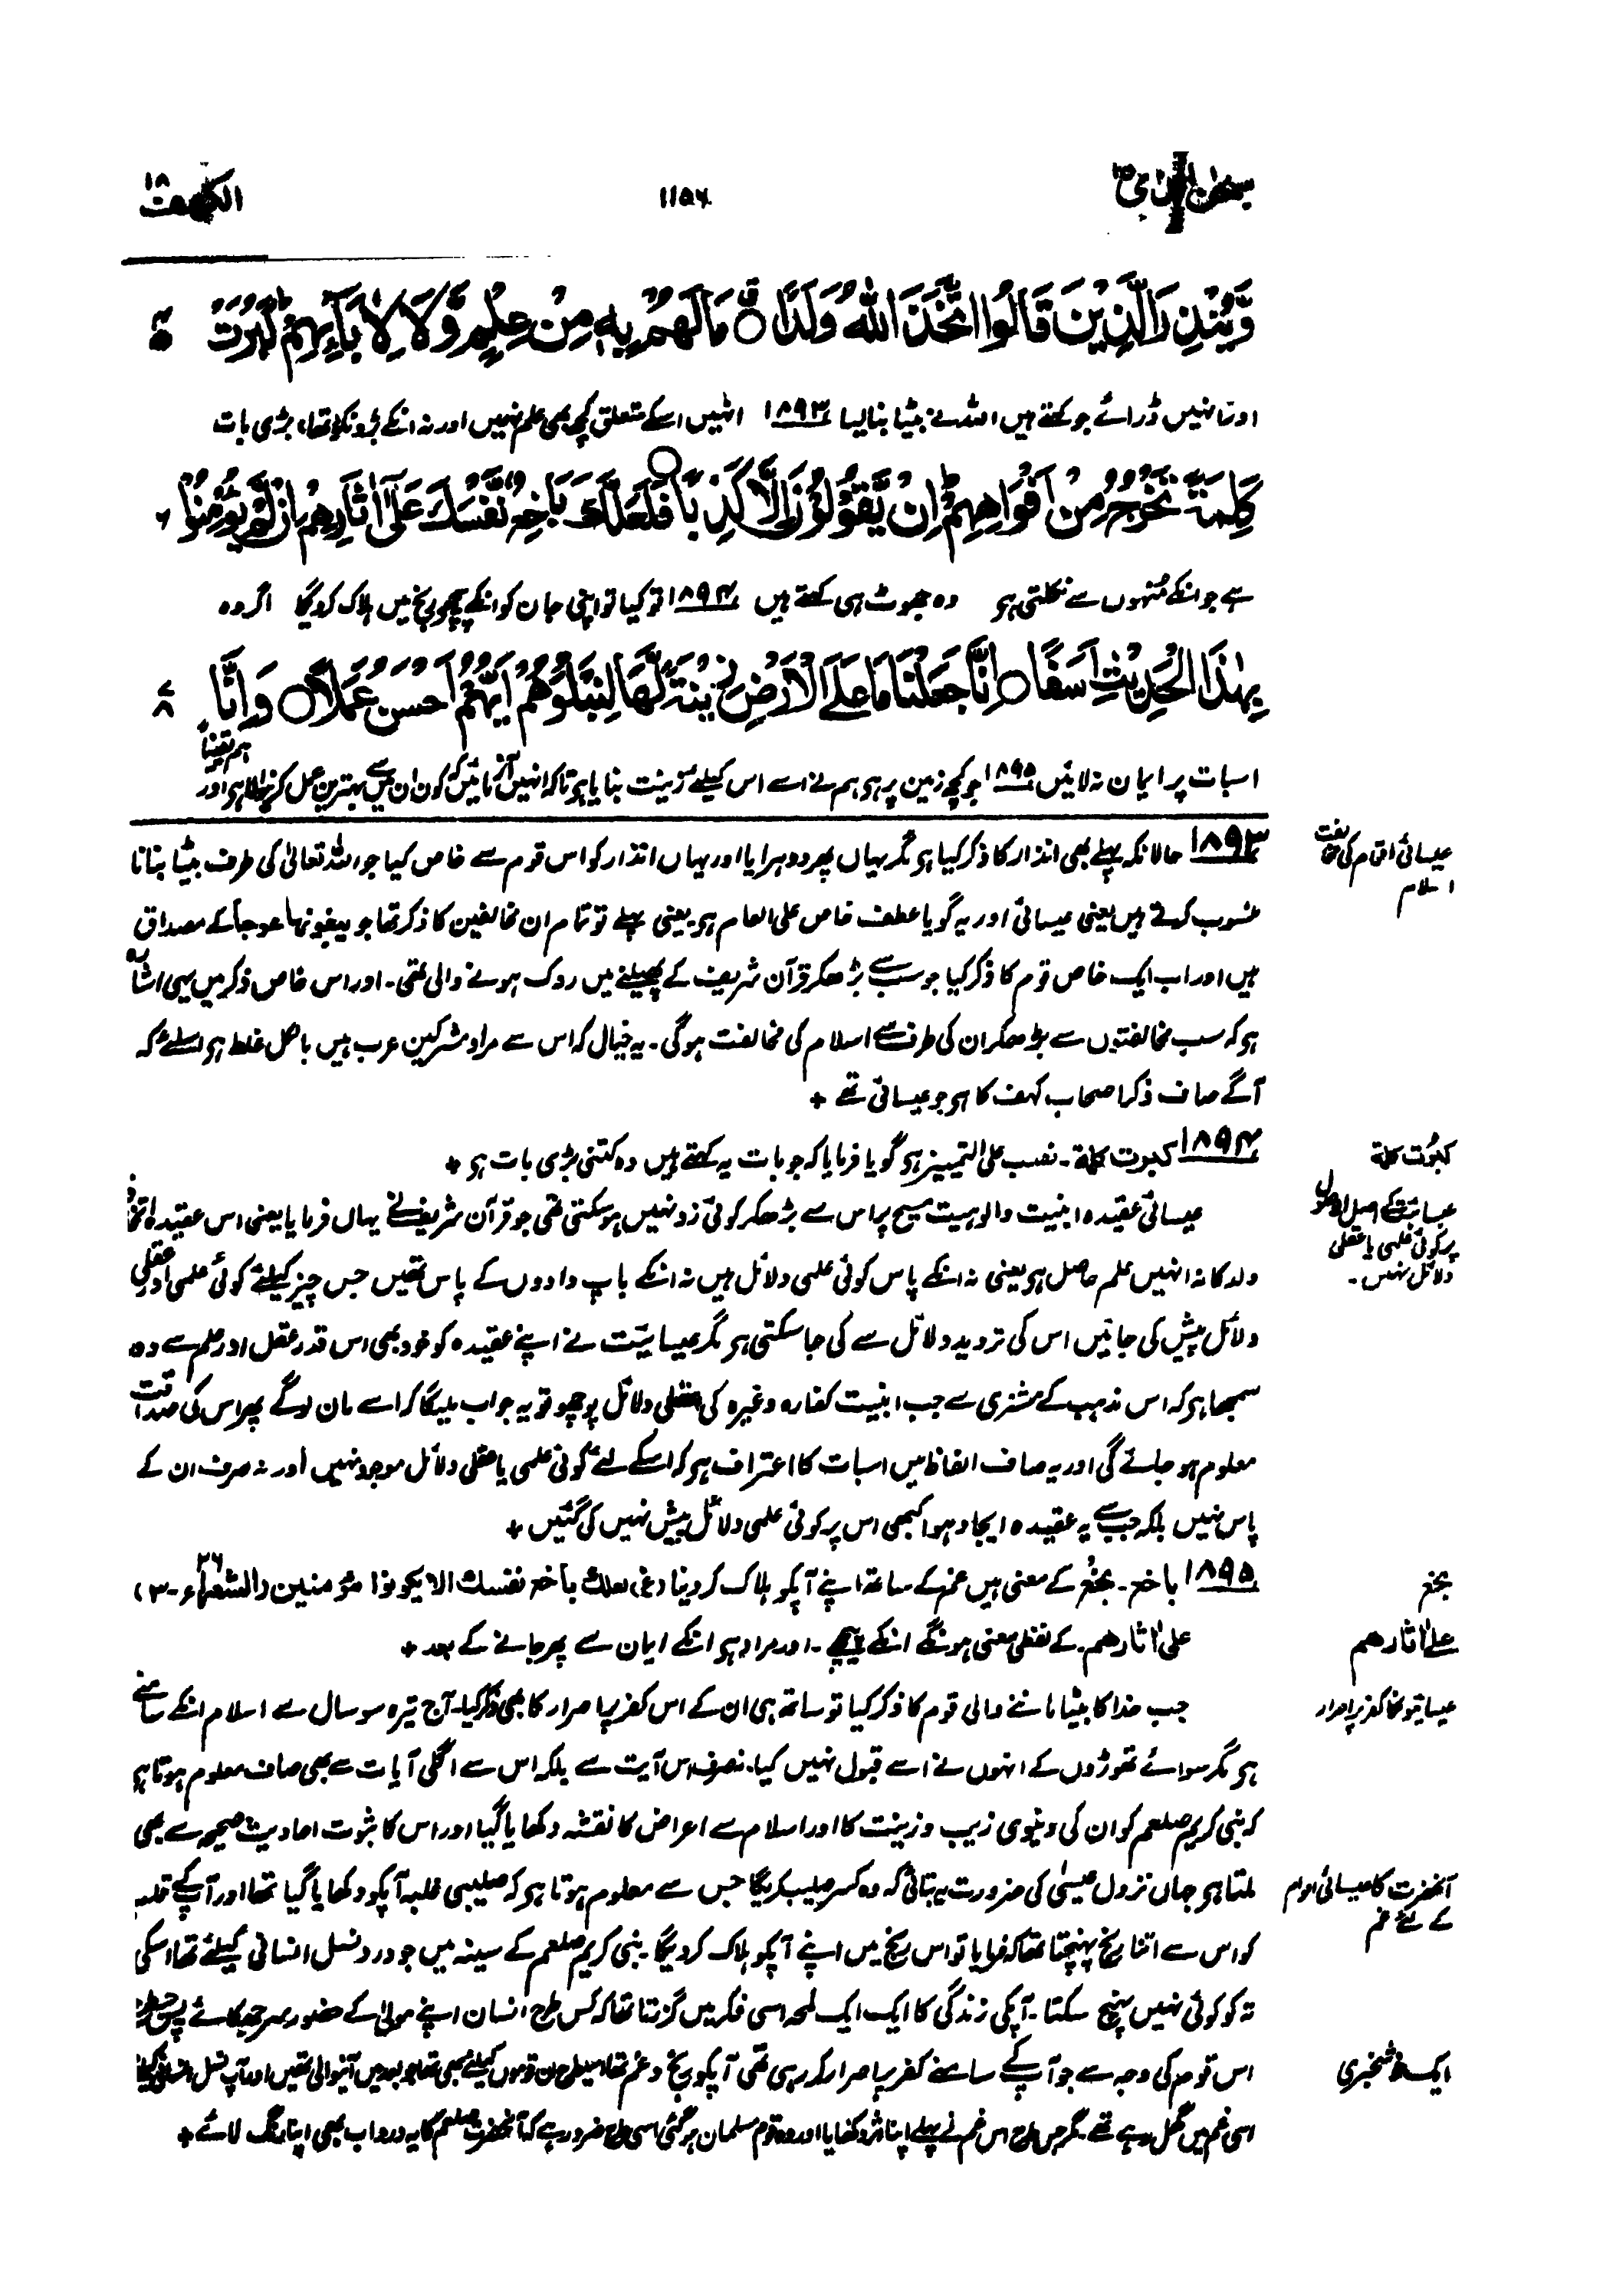 سبحٰن الذی ۱۵
۱۱۵۶
الکھف ۱۸
وَّیُنْذِرَ الَّذِیْنَ قَالُوا اتَّخَذَ اللّٰهُ وَلَدًا ○ مَا لَهُمْ بِهٖ مِنْ عِلْمٍ وَّلَا لِاٰبَآىِٕهِمْ ؕ كَبُرَتْ
اور انہیں ڈرائے جو کہتے ہیں اللہ نے بیٹا بنا لیا ۱۸۹۳ انہیں اسکے متعلق کچھ بھی علم نہیں اور نہ انکے بڑونکو تھا، بڑی بات
كَلِمَةً تَخْرُجُ مِنْ اَفْوَاهِهِمْ ؕ اِنْ یَّقُوْلُوْنَ اِلَّا كَذِبًا ○ فَلَعَلَّكَ بَاخِعٌ نَّفْسَكَ عَلٰۤى اٰثَارِهِمْ اِنْ لَّمْ یُؤْمِنُوْا ۶
ہے جو انکے مُنہوں سے نکلتی ہو وہ جھوٹ ہی کہتے ہیں ۱۸۹۴ تو کیا تو اپنی جان کو انکے پیچھے رنج میں ہلاک کر دیگا اگر وہ
بِهٰذَا الْحَدِیْثِ اَسَفًا ○ اِنَّا جَعَلْنَا مَا عَلَى الْاَرْضِ زِیْنَةً لَّهَا لِنَبْلُوَهُمْ اَیُّهُمْ اَحْسَنُ عَمَلًا ○ وَ اِنَّا ۷ ۸
اسبات پر ایمان نہ لائیں ۱۸۹۵ جو کچھ زمین پر ہو ہم نے اسے اس کیلئے زینت بنایا ہو تاکہ انہیں آزمائیں کہ کون ان میں سے بہترین عمل کرنیوالا ہو اور ہم یقیناً
۱۸۹۳ حالانکہ پہلے بھی انذار کا ذکر کیا ہو مگر یہاں پھر دوہرایا اور یہاں انذار کو اس قوم سے خاص کیا جو اللہ تعالیٰ کی طرف بیٹا بنانا
عیسائی اقوام کی مخالفت اسلام
منسوب کرتے ہیں یعنی عیسائی اور یہ گویا عطف خاص علی العام ہو یعنی پہلے تو تمام ان مخالفین کا ذکر تھا جو یبغونہا عوجا کے مصداق
ہیں اور اب ایک خاص قوم کا ذکر کیا جو سب سے بڑھکر قرآن شریف کے پھیلنے میں روک ہونے والی تھی۔ اور اس خاص ذکر میں یہی اشارہ
ہو کہ سب مخالفتوں سے بڑھکر ان کی طرف سے اسلام کی مخالفت ہوگی۔ یہ خیال کہ اس سے مراد مشرکین عرب ہیں بالکل غلط ہو اسلئے کہ
آگے صاف ذکر اصحاب کہف کا ہو جو عیسائی تھے +
۱۸۹۴ کبرت کلمة۔ نصب علی التمییز ہو گویا فرمایا کہ جو بات یہ کہتے ہیں وہ کتنی بڑی بات ہو +
کبرت کلمة
عیسائی عقیدہ ابنیت والوہیت مسیح پر اس سے بڑھکر کوئی زد نہیں ہو سکتی تھی جو قرآن شریف نے یہاں فرمایا یعنی اس عقیدہ اتخاذ
عیسائیت کے اصل الاصول
پر کوئی علمی یا عقلی
دلائل نہیں۔
ولد کا نہ انہیں علم حاصل ہو یعنی نہ انکے پاس کوئی علمی دلائل ہیں نہ انکے باپ دادوں کے پاس تھیں جس چیز کیلئے کوئی علمی اور عقلی
دلائل پیش کی جائیں اس کی تردید دلائل سے کی جا سکتی ہو مگر عیسائیت نے اپنے عقیدہ کو خود بھی اس قدر عقل اور علم سے دور
سمجھا ہو کہ اس مذہب کے مشنری سے جب ابنیت کفارہ وغیرہ کی عقلی دلائل پوچھو تو یہ جواب ملیگا کہ اسے مان لوگے پھر اس کی صداقت
معلوم ہو جائے گی اور یہ صاف الفاظ میں اسبات کا اعتراف ہو کہ اسکے لئے کوئی علمی یا عقلی دلائل موجود نہیں اور نہ صرف ان کے
پاس نہیں بلکہ جب سے یہ عقیدہ ایجاد ہوا کبھی اس پر کوئی علمی دلائل پیش نہیں کی گئیں +
۱۸۹۵ باخع۔ بخع کے معنی ہیں غم کے ساتھ اپنے آپکو ہلاک کر دینا (غ) لعلک باخع نفسک الا یکونوا مؤمنین (الشعراء ۲۶-۳)
بخع
علیٰ اٰثارھم۔ کے لفظی معنی ہونگے انکے پیچھے۔ اور مراد ہو انکے ایمان سے پھر جانے کے بعد +
علیٰ اٰثارھم
جب خدا کا بیٹا ماننے والی قوم کا ذکر کیا تو ساتھ ہی ان کے اس کفر پر اصرار کا بھی ذکر کیا۔ آج تیرہ سو سال سے اسلام انکے سامنے
عیسائیونکا کفر پر اصرار
ہو مگر سوائے تھوڑوں کے انہوں نے اسے قبول نہیں کیا۔ نہ صرف اس آیت سے بلکہ اس سے اگلی آیات سے بھی صاف معلوم ہوتا ہو
کہ نبی کریم صلعم کو ان کی دنیوی زیب و زینت کا اور اسلام سے اعراض کا نقشہ دکھایا گیا اور اس کا ثبوت احادیث صحیحہ سے بھی
ملتا ہو جہاں نزول عیسیٰ کی ضرورت یہ بتائی کہ وہ کسر صلیب کریگا جس سے معلوم ہوتا ہو کہ صلیبی غلبہ آپکو دکھایا گیا تھا اور آپ کے قلب
آنحضرت کا عیسائی اقوام
کے لئے غم
کو اس سے اتنا رنج پہنچتا تھا کہ فرمایا تو اس رنج میں اپنے آپکو ہلاک کر دیگا۔ نبی کریم صلعم کے سینہ میں جو درد نسل انسانی کیلئے تھا اسکی
تہ کو کوئی نہیں پہنچ سکتا۔ آپکی زندگی کا ایک ایک لمحہ اسی فکر میں گزرتا تھا کہ کس طرح انسان اپنے مولیٰ کے حضور سر جھکائے پس جس طرح
اس قوم کی وجہ سے جو آپ کے سامنے کفر پر اصرار کر رہی تھی آپکو رنج و غم تھا اسیطرح ان قوموں کیلئے بھی تھا جو بعد میں آنیوالی تھیں اور آپ نسل انسانی کیلئے
ایک خوشخبری
اسی غم میں گھل رہے تھے۔ مگر جس طرح اس غم نے پہلے اپنا اثر دکھایا اور وہ قوم مسلمان ہو گئی اسی طرح ضرور ہے کہ آنحضرت صلعم کا یہ درد اب بھی اپنا رنگ لائے +